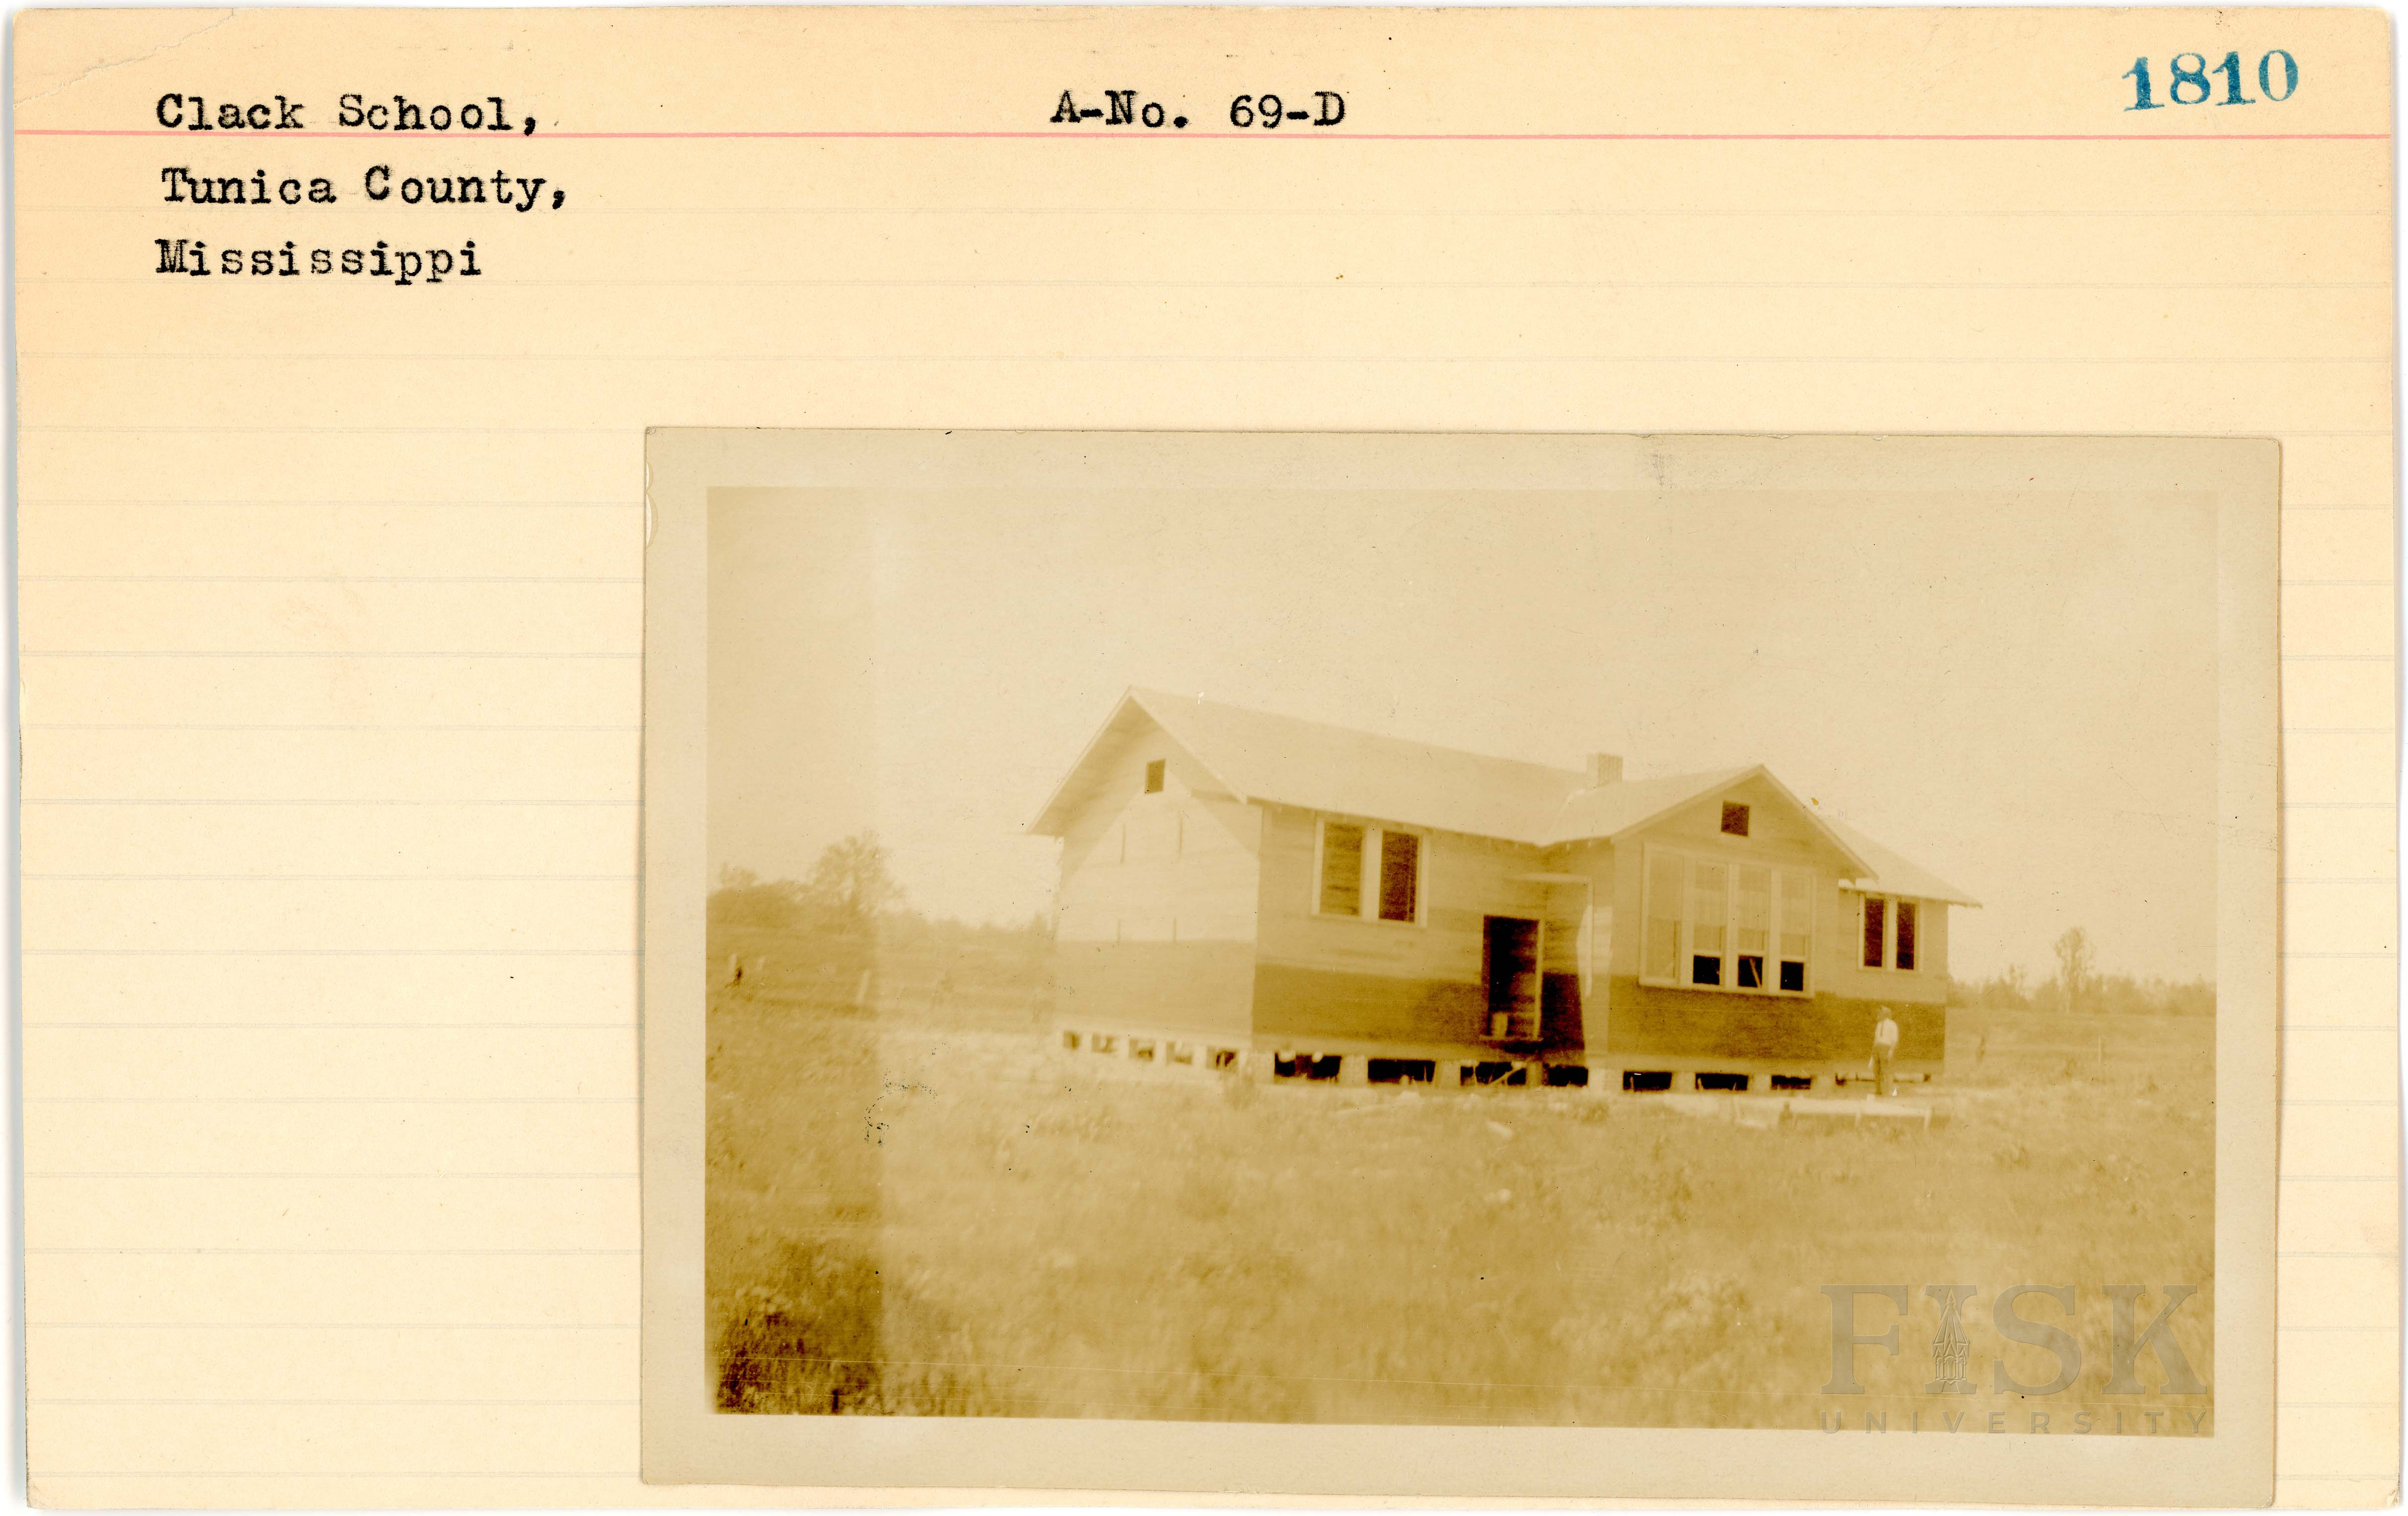 Clack School, A-No. 69-D 1810
Tunica County,
Mississippi
FISK
UNIVERSITY